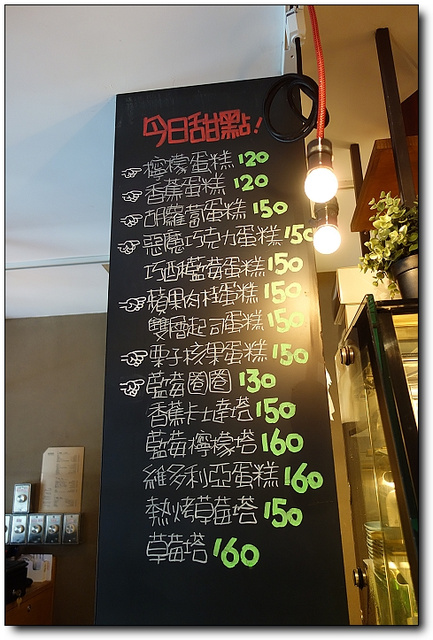 今日甜點!
檸檬蛋糕 120
香蕉蛋糕 120
胡蘿蔔蛋糕 150
惡魔巧克力蛋糕 150
巧酒藍莓蛋糕 150
蘋果肉桂蛋糕 150
雙層起司蛋糕 150
栗子核果蛋糕 150
藍莓圈圈 130
香蕉卡士達塔 150
藍莓檸檬塔 160
維多利亞蛋糕 160
熱烤草莓塔 150
草莓塔 160